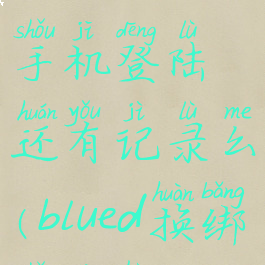 shǒu jī dēng lù
手机登陆
huán yǒu jì lù me
还有记录么
huàn bǎng
(blued换绑